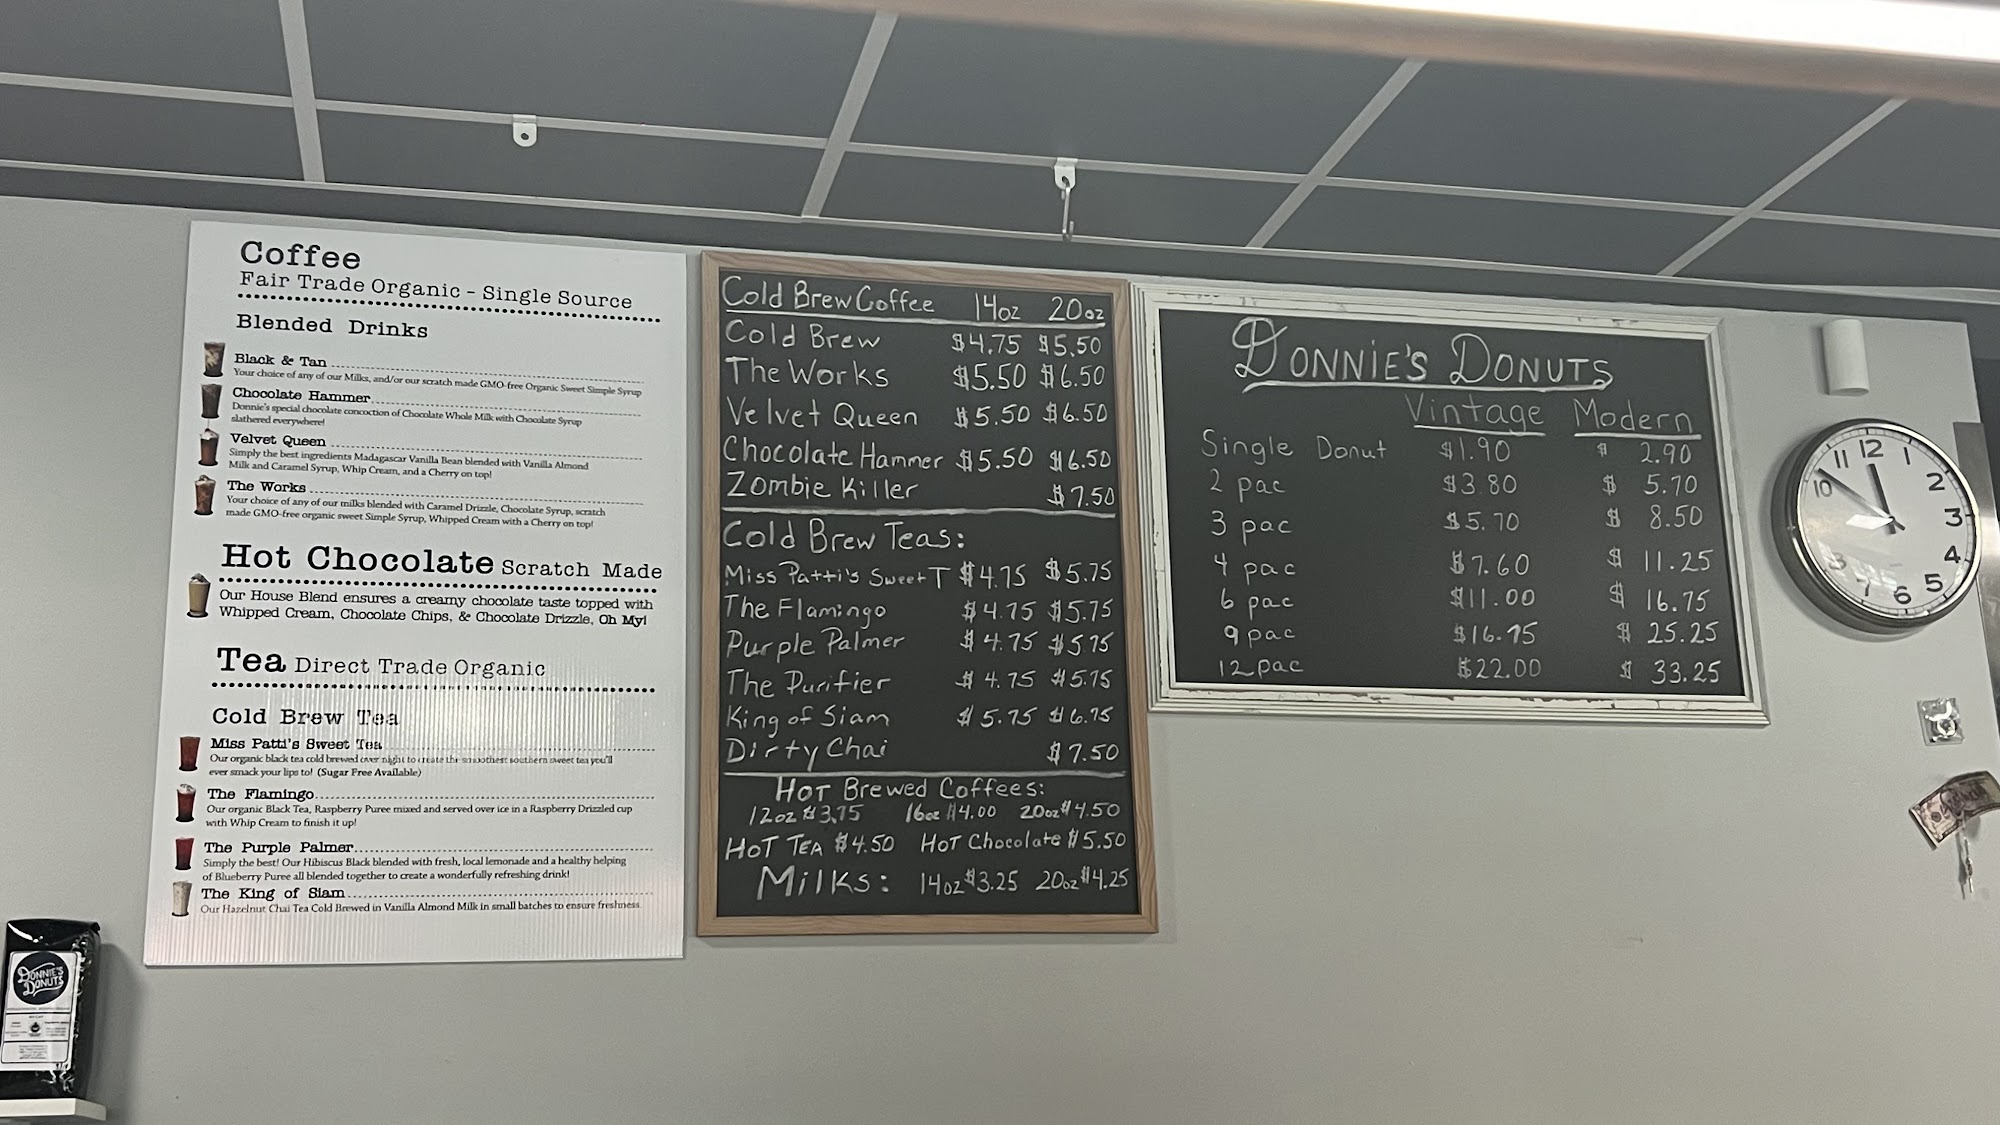 Coffee
Fair Trade Organic - Single Source
Blended Drinks
Black & Tan
Your choice of any of our Milks, and/or our scratch made GMO-free Organic Sweet Simple Syrup
Chocolate Hammer
Donnie's special chocolate concoction of Chocolate Whole Milk with Chocolate Syrup
slathered everywhere!
Velvet Queen
Simply the best ingredients Madagascar Vanilla Bean blended with Vanilla Almond
Milk and Caramel Syrup, Whip Cream, and a Cherry on top!
The Works
Your choice of any of our milks blended with Caramel Drizzle, Chocolate Syrup, scratch
made GMO-free organic sweet Simple Syrup, Whipped Cream with a Cherry on top!
Hot Chocolate Scratch Made
Our House Blend ensures a creamy chocolate taste topped with
Whipped Cream, Chocolate Chips, & Chocolate Drizzle, Oh My!
Tea Direct Trade Organic
Cold Brew Tea
Miss Patti's Sweet Tea
Our organic black tea cold brewed over night to create the smoothest southern sweet tea you'll
ever smack your lips to! (Sugar Free Available)
The Flamingo
Our organic Black Tea, Raspberry Puree mixed and served over ice in a Raspberry Drizzled cup
with Whip Cream to finish it up!
The Purple Palmer
Simply the best! Our Hibiscus Black blended with fresh, local lemonade and a healthy helping
of Blueberry Puree all blended together to create a wonderfully refreshing drink!
The King of Siam
Our Hazelnut Chai Tea Cold Brewed in Vanilla Almond Milk in small batches to ensure freshness.
Cold Brew Coffee 14oz 20oz
Cold Brew $4.75 $5.50
The Works $5.50 $6.50
Velvet Queen $5.50 $6.50
Chocolate Hammer $5.50 $6.50
Zombie Killer $7.50
Cold Brew Teas:
Miss Patti's Sweet T $4.75 $5.75
The Flamingo $4.75 $5.75
Purple Palmer $4.75 $5.75
The Purifier $4.75 $5.75
King of Siam $5.75 $6.75
Dirty Chai $7.50
Hot Brewed Coffees:
12oz $3.75 16oz $4.00 20oz $4.50
Hot Tea $4.50 Hot Chocolate $5.50
Milks: 14oz $3.25 20oz $4.25
Donnie's Donuts
Vintage Modern
Single Donut $1.90 $ 2.90
2 pac $3.80 $ 5.70
3 pac $5.70 $ 8.50
4 pac $7.60 $ 11.25
6 pac $11.00 $ 16.75
9 pac $16.75 $ 25.25
12 pac $22.00 $ 33.25
12
1
2
3
4
5
6
7
8
10
11
DONNIE'S
DONUTS